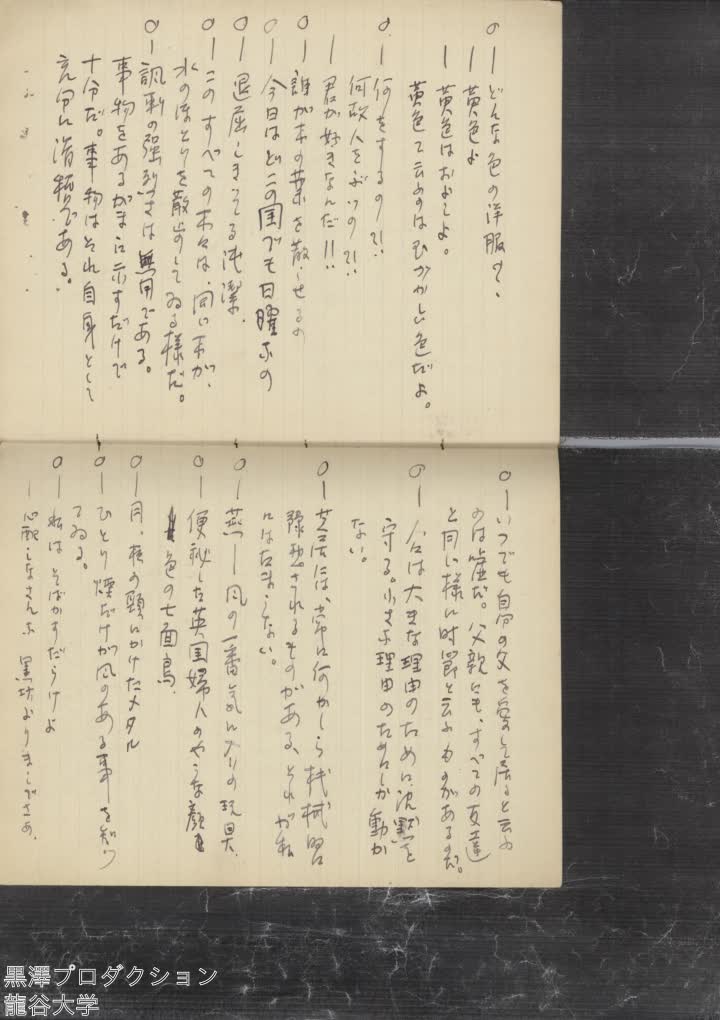 ○ーどんな色の洋服の、
ー黄色よ
ー黄色はおよしよ。
黄色て云ふのはむづかしい色だよ。
○ー何をするの?!!
何故人をぶつの?!!
ー君が好きなんだ!!
○ー誰が木の葉を散らせるの
○ー今日はどこの国でも日曜なの
○ー退屈しきつてる純潔、
○ーこのすべての木々は、同じ木が、
水のほとりを散歩してゐる様だ。
○ー諷刺の強烈さは無用である。
事物をあるがまに示すだけで
十分だ。事物はそれ自身として
充分に滑稽である。
○ーいつでも自分の父を愛して居ると云ふ
のは嘘だ。父親にも、すべての友達
と同じ様に時節と云ふものがあるのだ。
○ー人は大きな理由のために沈黙を
守る。小さな理由のためにしか動か
ない。
○ー芝居には、常に何かしら機械習
されるものがある、それが私
にはたまらない。
○ー燕ー風の一番気に入りの玩具、
○ー便秘した英国婦人のやうな顔
色の七面鳥、
○ー月、夜の頸にかけたメタル
○ーひとり煙だけが風のある事を知つ
てゐる。
○ー私はそばかすだらけよ
ー心配しなさんな 黒坊よりましでさあ、
黒澤プロダクション
龍谷大学